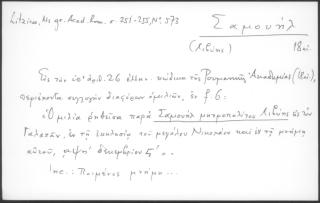 Litzica, Ms gr. Acad. Rom. σ. 251-255, Nº. 573
Σαμουήλ
(Λιβύης) 18αι.
Εις τον υπ' αριθ. 26 ελλην. κώδικα της Ρουμανικής Ακαδημίας (18αι.),
περιέχοντα συλλογήν διαφόρων ομιλιών, εν f 6:
Ομιλία ρηθείσα παρά Σαμουήλ μητροπολίτου Λιβύης εις τον
Γαλατάν, εν τη εκκλησία του μεγάλου Νικολάου και εν τη μνήμη
αυτού, αψη' δεκεμβρίου ς'..
Inc.: Ποιμένος μνήμη...